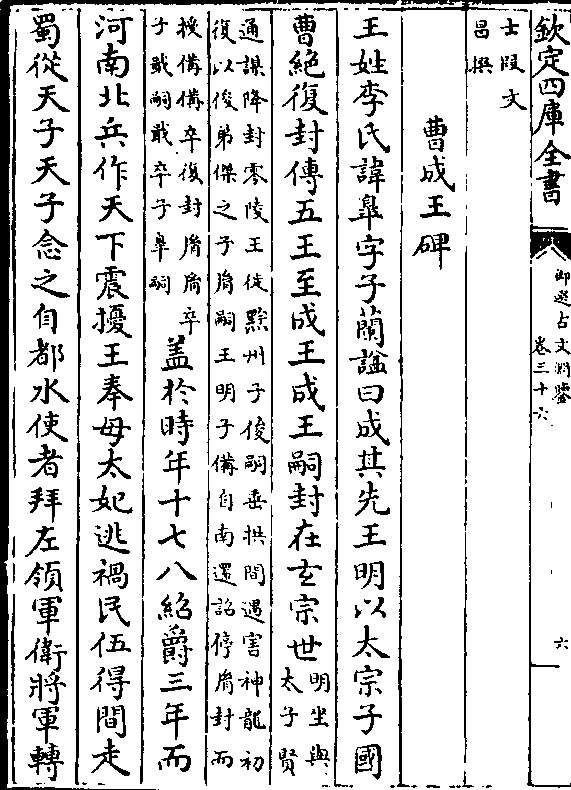 欽定四庫全書
御選古文淵鑒
卷三十六
六
士段文
昌撰
曹成王碑
王姓李氏諱臯字子蘭諡曰成其先王明以太宗子國
曹絶復封傳五王至成王成王嗣封在玄宗世
明坐與
太子賢
通謀降封零陵王徙黔州子俊嗣垂拱間遇害神龍初
復以俊弟傑之子胤嗣王明子備自南還詔停胤封而
授備備卒復封胤胤卒
子戢嗣戢卒子臯嗣
蓋於時年十七八紹爵三年而
河南北兵作天下震擾王奉母太妃逃禍民伍得間走
蜀從天子天子念之自都水使者拜左領軍衛將軍轉